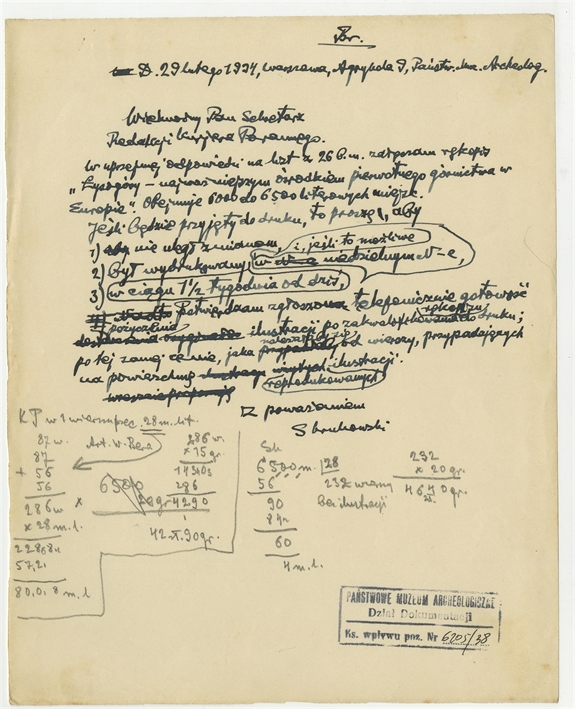 Br.
D. 29 lutego 1934, Warszawa, Agrykola 9, Państw. Muz. Archeolog.
Wielmożny Pan Sekretarz
Redakcji Kurjera Porannego.
W uprzejmej odpowiedzi na list z 26 b.m. załączam rękopis
"Łysogóry – najważniejszym ośrodkiem pierwotnego górnictwa w
Europie". Obejmuje 6000 do 6500 literowych miejsc.
Jeśli będzie przyjęty do druku, to proszę, aby
1) nie uległ zmianom, i, jeśli to możliwe
2) był wydrukowany w niedzielnym N-e,
3) w ciągu 1 1/2 tygodnia od dziś,
Potwierdzam zgłoszoną telefonicznie gotowość
pożyczenia ilustracji po zakwalifikowaniu rękopisu do druku;
po tej samej cenie, jaka od wierszy, przypadających
na powierzchnię ilustracji.
reprodukowanych
Z poważaniem
S Krukowski
KP w 1 wierszu 28 m. lit.
87 w.
87
+ 56
56
286 w
x 28 m.l.
2288
572
8008 m.l
Art. w. Bera
6500
286 w.
x 15 gr.
1430
286
gr 4290
42 zł. 90 gr.
6500 m. | 28
56 232 wierszy
90 bez ilustracji
84
60
4 m.l.
232
x 20 gr.
4640 gr.
zł.
PAŃSTWOWE MUZEUM ARCHEOLOGICZNE
Dział Dokumentacji
Ks. wpływu poz. Nr 6205/38